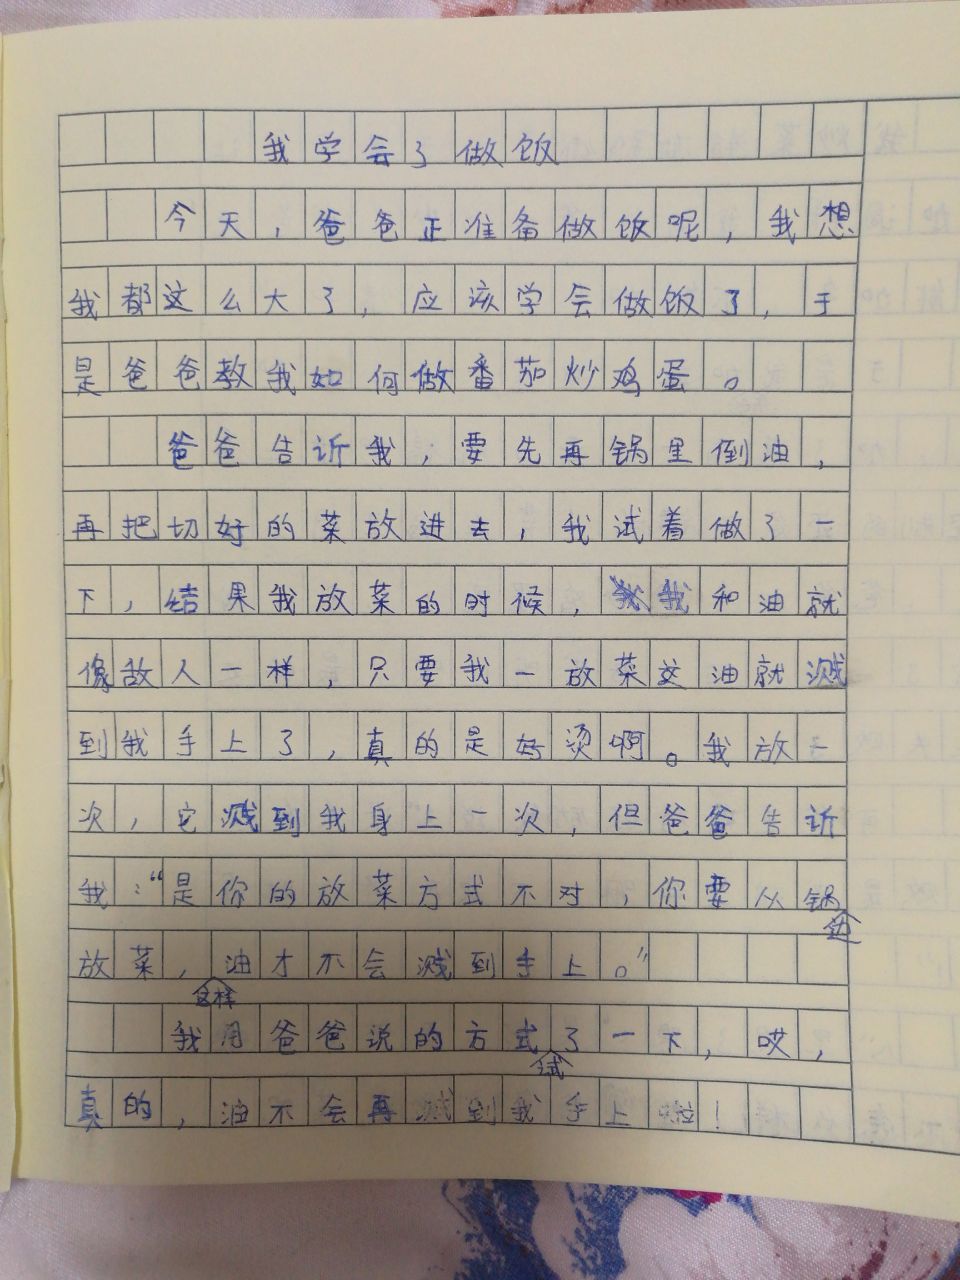 我学会了做饭
今天，爸爸正准备做饭呢，我想
我都这么大了，应该学会做饭了，于
是爸爸教我如何做番茄炒鸡蛋。
爸爸告诉我，要先再锅里倒油，
再把切好的菜放进去，我试着做了一
下，结果我放菜的时候，我和油就
像敌人一样，只要我一放菜交油就溅
到我手上了，真的是好烫啊。我放一
次，它溅到我身上一次，但爸爸告诉
我：“是你的放菜方式不对，你要从锅边
放菜，这样油才不会溅到手上。”
我用爸爸说的方式试了一下，哎，
真的，油不会再溅到我手上啦！